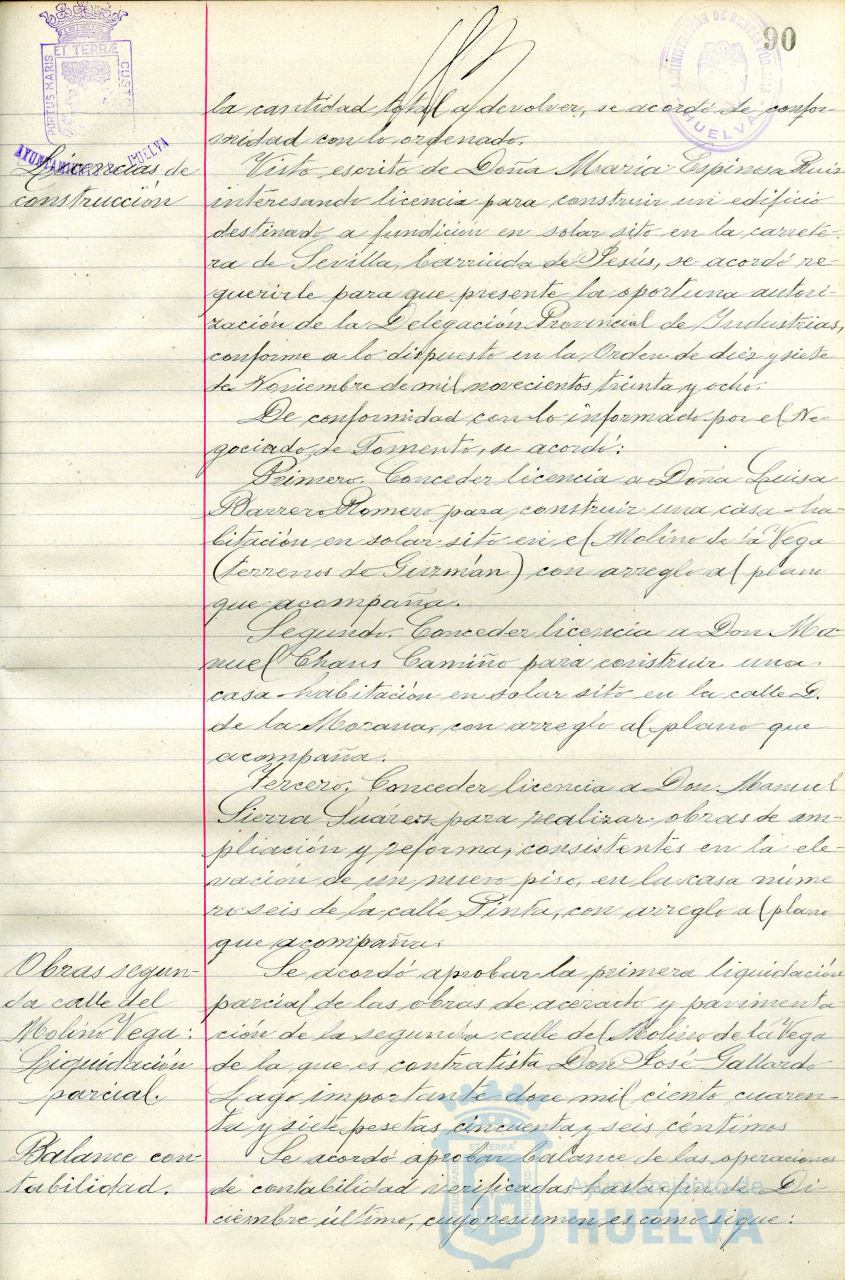 90
PORTUS MARIS
ET TERRÆ
CUST
AYUNTAMIENTO HUELVA
ADMINISTRACIÓN DE RENTAS
HUELVA
la cantidad total a devolver, se acordó de confor-
midad con lo ordenado.
Licencias de
construcción
Visto escrito de Doña María Espinosa Ruiz
interesando licencia para construir un edificio
destinado a fundición en solar sito en la carrete-
ra de Sevilla, barriada de Jesús, se acordó re-
querirle para que presente la oportuna autori-
zación de la Delegación Provincial de Industrias,
conforme a lo dispuesto en la Orden de diez y siete
de Noviembre de mil novecientos treinta y ocho.
De conformidad con lo informado por el Ne-
gociado de Fomento, se acordó:
Primero. Conceder licencia a Doña Luisa
Barrero Romero para construir una casa-ha-
bitación en solar sito en el Molino de la Vega
(terrenos de Guzmán) con arreglo al plano
que acompaña.
Segundo. Conceder licencia a Don Ma-
nuel Chans Camiño para construir una
casa-habitación en solar sito en la calle D.
de la Morana, con arreglo al plano que
acompaña.
Tercero. Conceder licencia a Don Manuel
Sierra Suárez para realizar obras de am-
pliación y reforma, consistentes en la ele-
vación de un nuevo piso, en la casa núme
ro seis de la calle Pinta, con arreglo al plano
que acompaña.
Obras segun-
da calle del
Molino Vega:
Liquidación
parcial.
Se acordó aprobar la primera liquidación
parcial de las obras de acerado y pavimenta
ción de la segunda calle del Molino de la Vega
de la que es contratista Don José Gallardo
Lago importante doce mil ciento cuaren-
ta y siete pesetas cincuenta y seis céntimos
Balance con-
tabilidad.
Se acordó aprobar balance de las operaciones
de contabilidad verificadas hasta fin de Di-
ciembre último, cuyo resumen es como sigue:
Ayuntamiento de
HUELVA